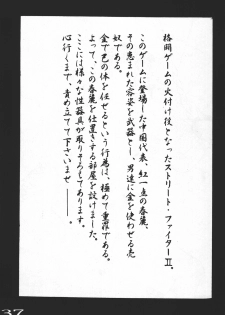 格闘ゲームの火付け役となったストリート・ファイターⅡ。
このゲームに登場した中国代表、紅一点の春麗。
その恵まれた容姿を武器とし、男達に金を使わせる売
奴である。
金で己の体を任せるという行為は、極めて重罪である。
よって、この春麗を仕置きする部屋を設けました。
ここには様々な性器具が取りそろえてあります。
心行くまで、責め立てて下さいませ――。
37